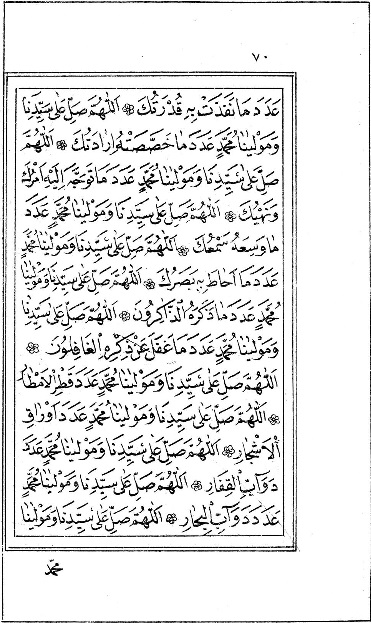 ٧٠
عَدَدَ مَا نَفَذَتْ بِهِ قُدْرَتُكَ ۞ اَللّٰهُمَّ صَلِّ عَلٰى سَيِّدِنَا
وَمَوْلٰينَا مُحَمَّدٍ عَدَدَ مَا خَصَّصَتْهُ اِرَادَتُكَ ۞ اَللّٰهُمَّ
صَلِّ عَلٰى سَيِّدِنَا وَمَوْلٰينَا مُحَمَّدٍ عَدَدَ مَا تَوَجَّهَ اِلَيْهِ اَمْرُكَ
وَنَهْيُكَ ۞ اَللّٰهُمَّ صَلِّ عَلٰى سَيِّدِنَا وَمَوْلٰينَا مُحَمَّدٍ عَدَدَ
مَا وَسِعَهُ سَمْعُكَ ۞ اَللّٰهُمَّ صَلِّ عَلٰى سَيِّدِنَا وَمَوْلٰينَا مُحَمَّدٍ
عَدَدَ مَا اَحَاطَ بِهِ بَصَرُكَ ۞ اَللّٰهُمَّ صَلِّ عَلٰى سَيِّدِنَا وَمَوْلٰينَا
مُحَمَّدٍ عَدَدَ مَا ذَكَرَهُ الذَّاكِرُونَ ۞ اَللّٰهُمَّ صَلِّ عَلٰى سَيِّدِنَا
وَمَوْلٰينَا مُحَمَّدٍ عَدَدَ مَا غَفَلَ عَنْ ذِكْرِهِ الْغَافِلُونَ ۞
اَللّٰهُمَّ صَلِّ عَلٰى سَيِّدِنَا وَمَوْلٰينَا مُحَمَّدٍ عَدَدَ قَطْرِ الْاَمْطَارِ
۞ اَللّٰهُمَّ صَلِّ عَلٰى سَيِّدِنَا وَمَوْلٰينَا مُحَمَّدٍ عَدَدَ اَوْرَاقِ
الْاَشْجَارِ ۞ اَللّٰهُمَّ صَلِّ عَلٰى سَيِّدِنَا وَمَوْلٰينَا مُحَمَّدٍ عَدَدَ
دَوَآبِّ الْقِفَارِ ۞ اَللّٰهُمَّ صَلِّ عَلٰى سَيِّدِنَا وَمَوْلٰينَا مُحَمَّدٍ
عَدَدَ دَوَآبِّ الْبِحَارِ ۞ اَللّٰهُمَّ صَلِّ عَلٰى سَيِّدِنَا وَمَوْلٰينَا
مُحَمَّدٍ